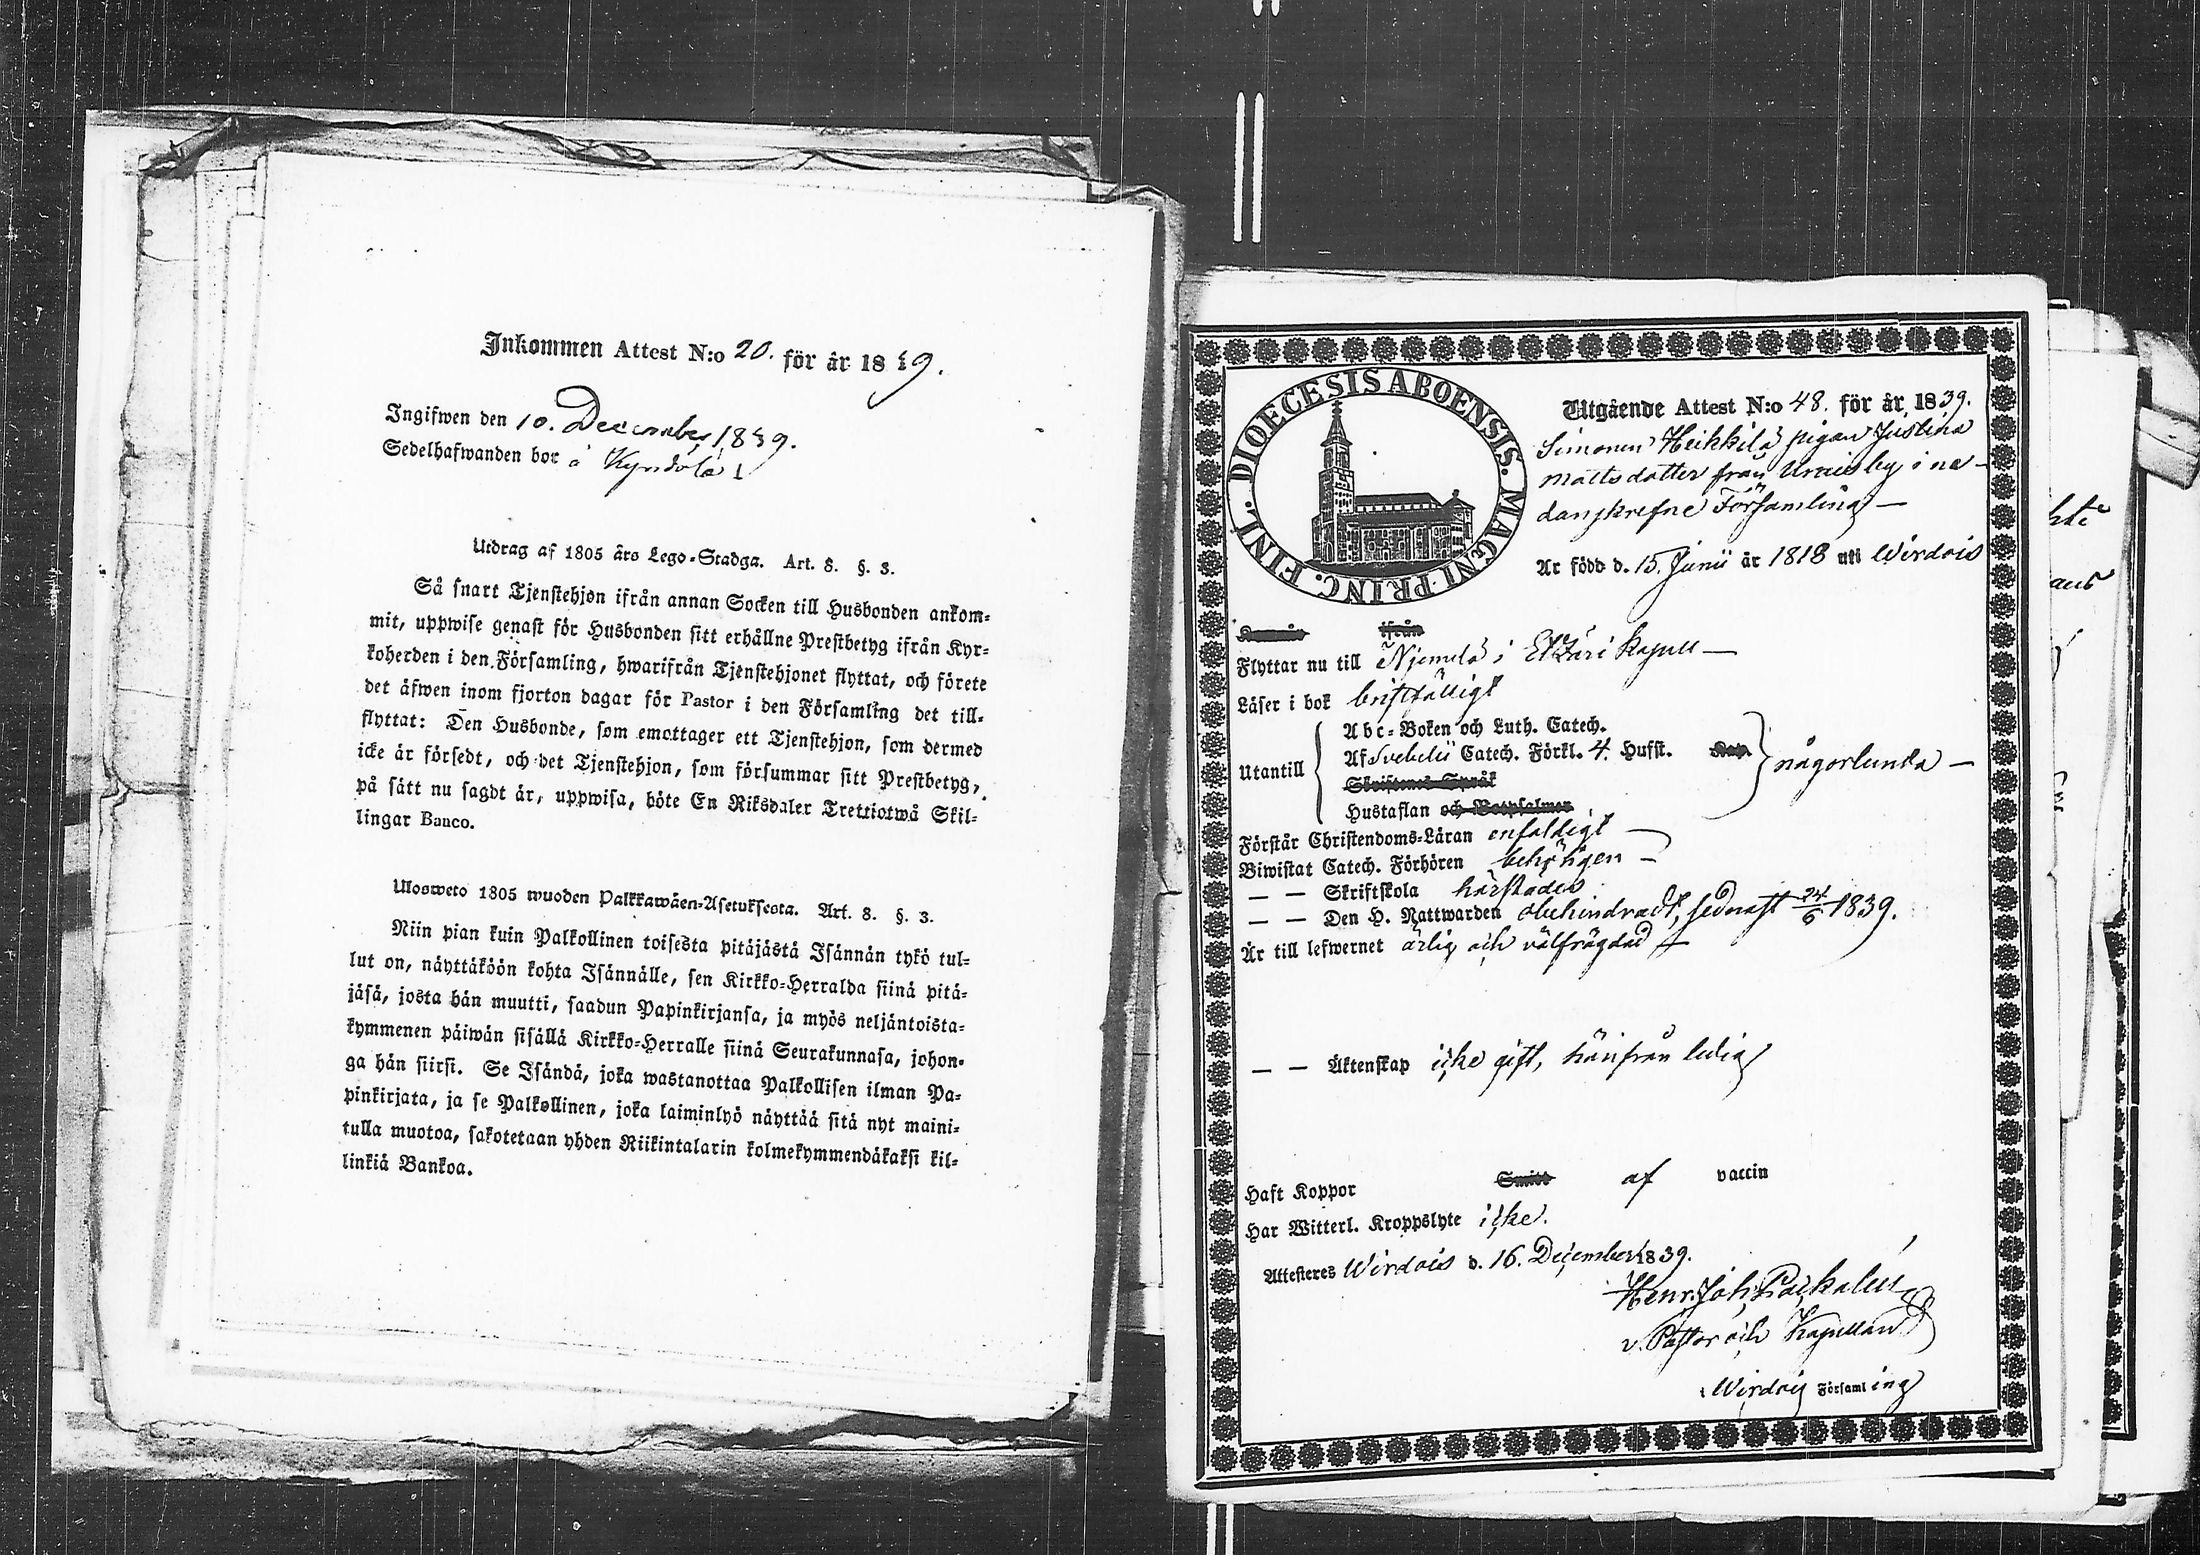 Inkommen Attest N:o 20. för år 1839.
Ingifwen den 10. December 1839.
Sedelhafwanden bor å
Utdrag af 1805 års Lego-Stadga. Art. 8. §. 3.
Så snart Tjenstehjon ifrån annan Socken till Husbonden ankom-
mit, uppwise genast för Husbonden sitt erhållne Prestbetyg ifrån Kyr-
koherden i den Församling, hwarifrån Tjenstehjonet flyttat, och förete
det äfwen inom fjorton dagar för Pastor i den Församling det till-
flyttat: Den Husbonde, som emottager ett Tjenstehjon, som dermed
icke är försedt, och det Tjenstehjon, som försummar sitt Prestbetyg,
på sätt nu sagdt är, uppwisa, böte En Riksdaler Trettiotwå Skil-
lingar Banco.
Ulosweto 1805 wuoden Palkkawäen-Asetuksesta. Art. 8. §. 3.
Niin pian kuin Palkollinen toisesta pitäjästä Isännän tykö tul-
lut on, näyttäköön kohta Isännälle, sen Kirkko-Herralda siinä pitä-
jäsä, josta hän muutti, saadun Papinkirjansa, ja myös neljäntoista-
kymmenen päiwän sisällä Kirkko-Herralle siinä Seurakunnasa, johon-
ga hän siirsi. Se Isändä, joka wastanottaa Palkollisen ilman Pa-
pinkirjata, ja se Palkollinen, joka laiminlyö näyttää sitä nyt maini-
tulla muotoa, sakotetaan yhden Riikintalarin kolmekymmendäkaksi kil-
linkiä Bankoa.
DIOECESIS ABOENSIS. MAGNI PRINC. FINL.
Utgående Attest N:o 48. för år 1839.
Simonen Heikkilä pigan Justina
Mattsdotter från by i ne-
danskrefne Församling
Är född d. 15. Junii år 1818 uti Wirdois
ifrån
Flyttar nu till Njemelä i Etzäri Kapell
Läser i bok bristfälligt
Utantill
Abc-Boken och Luth. Catech.
Af Svebelii Catech. Förkl. 4. Hufst. Kap. någorlunda
Skriftenes Språk
Hustaflan och Botpsalmer
Förstår Christendoms-Läran enfaldigt
Biwistat Catech. Förhören behörigen
— — Skriftskola härstädes
— — Den H. Nattwarden obehindradt, sednast 24/6 1839.
Är till lefwernet ärlig och välfrägdad
— — Äktenskap icke gift, härifrån ledig
Haft Koppor af vaccin
Har Witterl. Kroppslyte icke.
Attesteres Wirdois d. 16. December 1839.
Henr. Joh.
v. Pastor och Kapellan
i Wirdois Församling